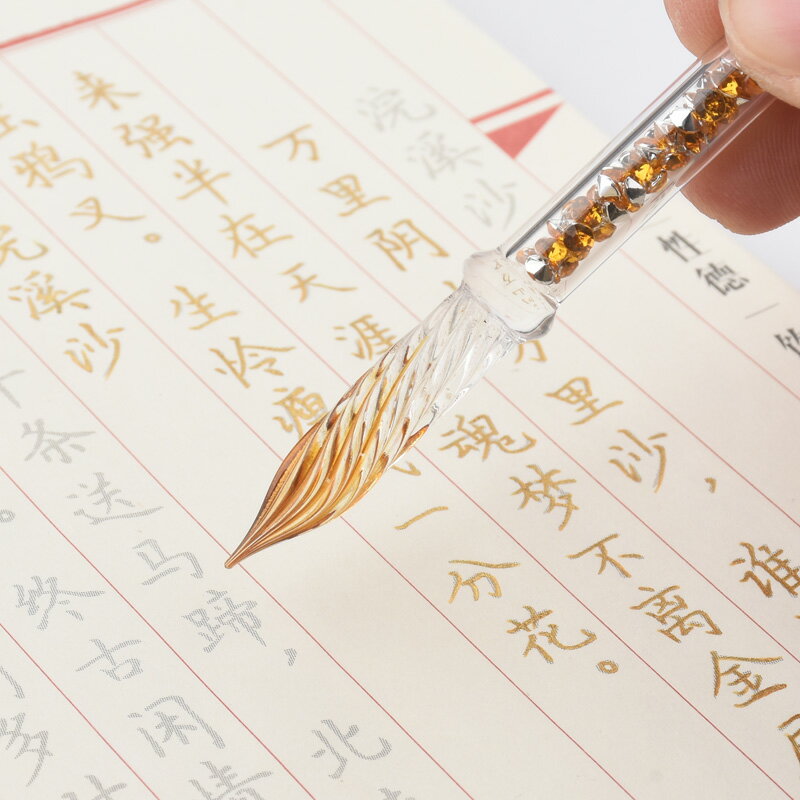 性德
浣溪沙
万里阴 万里沙，谁
来强半在天涯 魂梦不离金
鸦叉。生怜瘦 一分花。
浣溪沙
条送马蹄，北
终古闲情
多